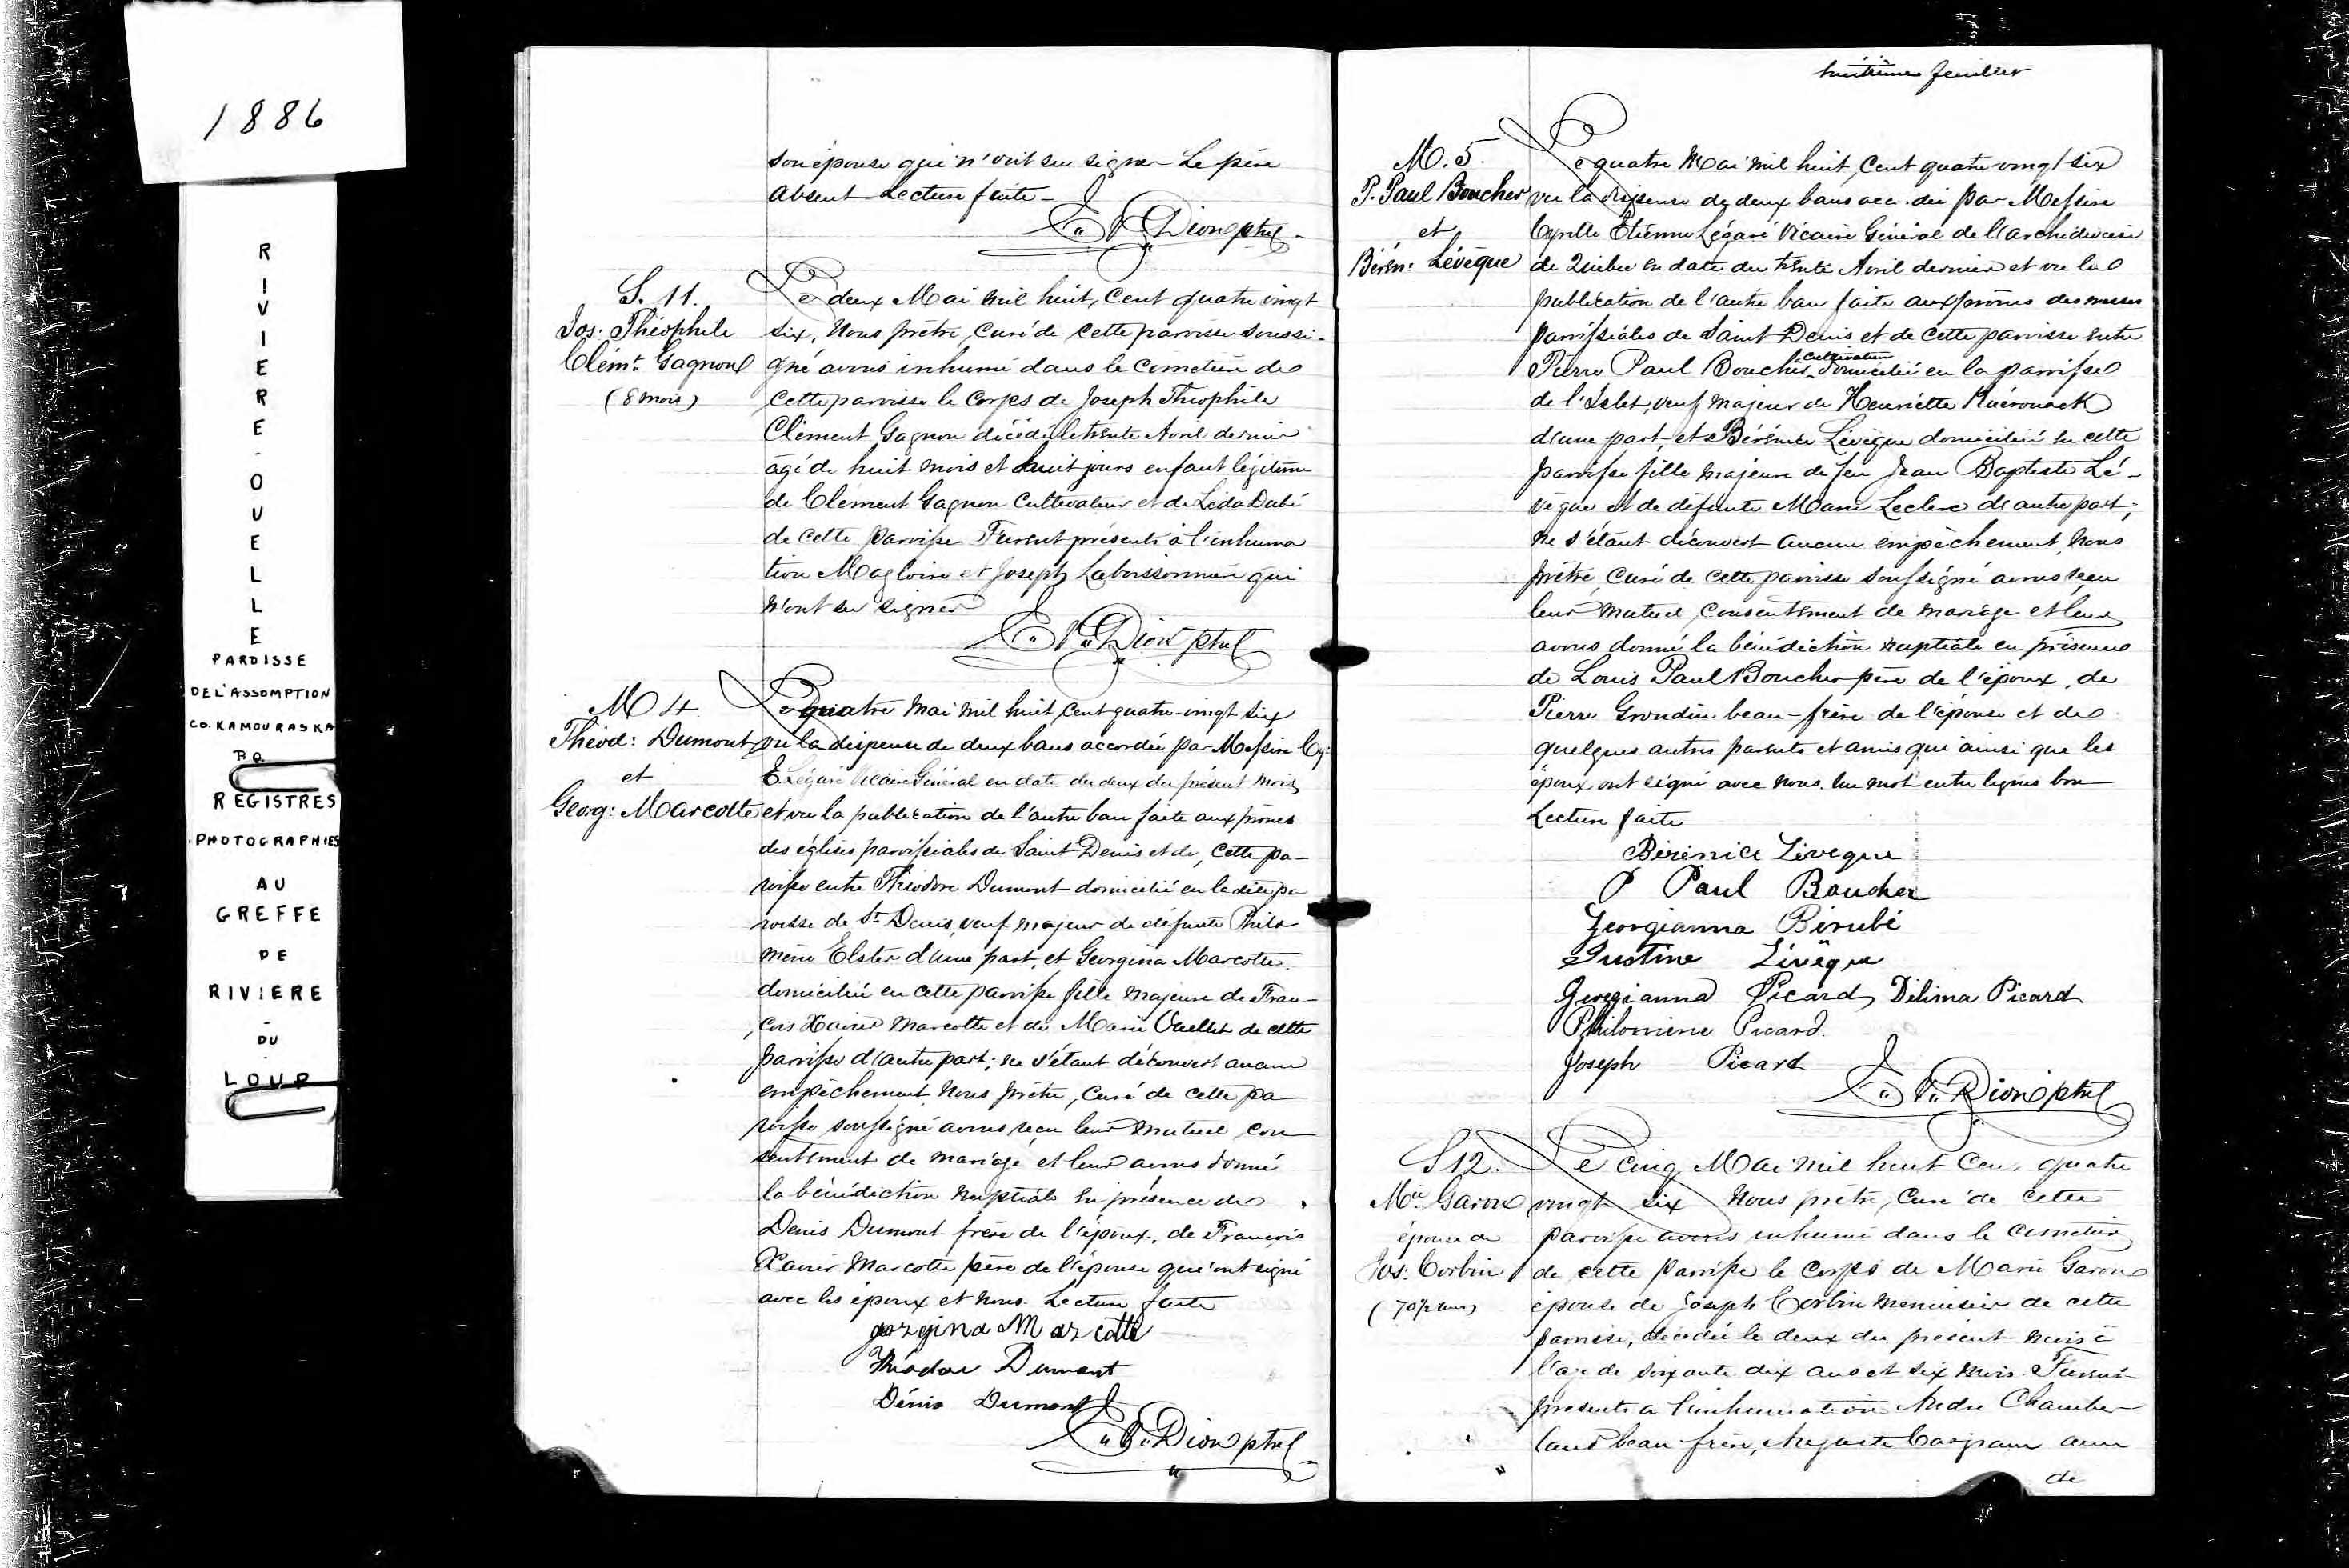 1886
RIVIERE-OUELLE
PAROISSE
DE L'ASSOMPTION
CO. KAMOURASKA
P.Q.
REGISTRES
PHOTOGRAPHIES
AU
GREFFE
DE
RIVIERE
-
DU
-
LOUP
son épouse qui n'ont su signer Le père
absent Lecture faite -
E. V. Dion ptre
S. 11.
Jos. Théophile
Clémt. Gagnon
(8 mois)
Le deux Mai mil huit cent quatre vingt
six, Nous prêtre, curé de cette paroisse soussi-
gné avons inhumé dans le cimetière de
cette paroisse le corps de Joseph Théophile
Clément Gagnon décédé le trente Avril dernier
âgé de huit mois et huit jours enfant légitime
de Clément Gagnon Cultivateur et de Léda Dubé
de cette paroisse Furent présents à l'inhuma
tion Magloire et Joseph Laboissonnière qui
n'ont su signer
E. V. Dion ptre
M 4.
Théod: Dumont
et
Georg: Marcotte
Le quatre mai mil huit cent quatre-vingt six
vu la dispense de deux bans accordée par Messire Cy:
E Légaré Vicaire Général en date du deux du présent mois
et vu la publication de l'autre ban faite aux prônes
des églises paroissiales de Saint Denis et de cette pa-
roisse entre Théodore Dumont domicilié en la dite pa
roisse de St Denis, veuf majeur de défunte Philo
mène Elster d'une part, et Georgina Marcotte
domiciliée en cette paroisse fille majeure de Fran-
çois Xavier Marcotte et de Marie Ouellet de cette
paroisse d'autre part; ne s'étant découvert aucun
empêchement, Nous prêtre, curé de cette pa
roisse soussigné avons reçu leur mutuel con
sentement de mariage et leur avons donné
la bénédiction nuptiale en présence de
Denis Dumont frère de l'époux, de François
Xavier Marcotte père de l'épouse qui ont signé
avec les époux et nous. Lecture faite
gorgina Marcotte
Théodor Dumont
Dénis Dumont
E. V. Dion ptre
huitième feuillet
M. 5.
P. Paul Boucher
et
Bérén: Lévêque
Le quatre Mai mil huit cent quatre vingt six
vu la dispense de deux bans accordée par Messire
Cyrille Etienne Légaré Vicaire Général de l'archidiocèse
de Québec en date du trente Avril dernier et vu la
publication de l'autre ban faite aux prônes des messes
paroissiales de Saint Denis et de cette paroisse entre
cultivateur
Pierre Paul Boucher domicilié en la paroisse
de l'Islet, veuf majeur de Henriette Kuérouack
d'une part, et Bérénice Lévêque domiciliée en cette
paroisse fille majeure de feu Jean Baptiste Lé-
vêque et de défunte Marie Leclerc d'autre part;
ne s'étant découvert aucun empêchement, Nous
prêtre, curé de cette paroisse soussigné avons reçu
leur mutuel consentement de mariage et leur
avons donné la bénédiction nuptiale en présence
de Louis Paul Boucher père de l'époux, de
Pierre Grondin beau-frère de l'épouse et de
quelques autres parents et amis qui ainsi que les
époux ont signé avec nous. Un mot entre lignes bon
Lecture faite
Bérénice Lévêque
P Paul Boucher
Georgianna Bérubé
Justine Lévêque
Georgianna Picard, Délima Picard
Philomène Picard
Joseph Picard
E. V. Dion ptre
S 12.
Mie Garon
épouse de
Jos: Corbin
(70½ ans)
Le cinq Mai mil huit cent quatre
vingt six Nous prêtre, Curé de cette
paroisse avons inhumé dans le cimetière
de cette paroisse le corps de Marie Garon
épouse de Joseph Corbin menuisier de cette
paroisse, décédée le deux du présent mois à
l'age de soixante dix ans et six mois. Furent
présents à l'inhumation André Chamber-
land beau-frère, Auguste Casgrain
de